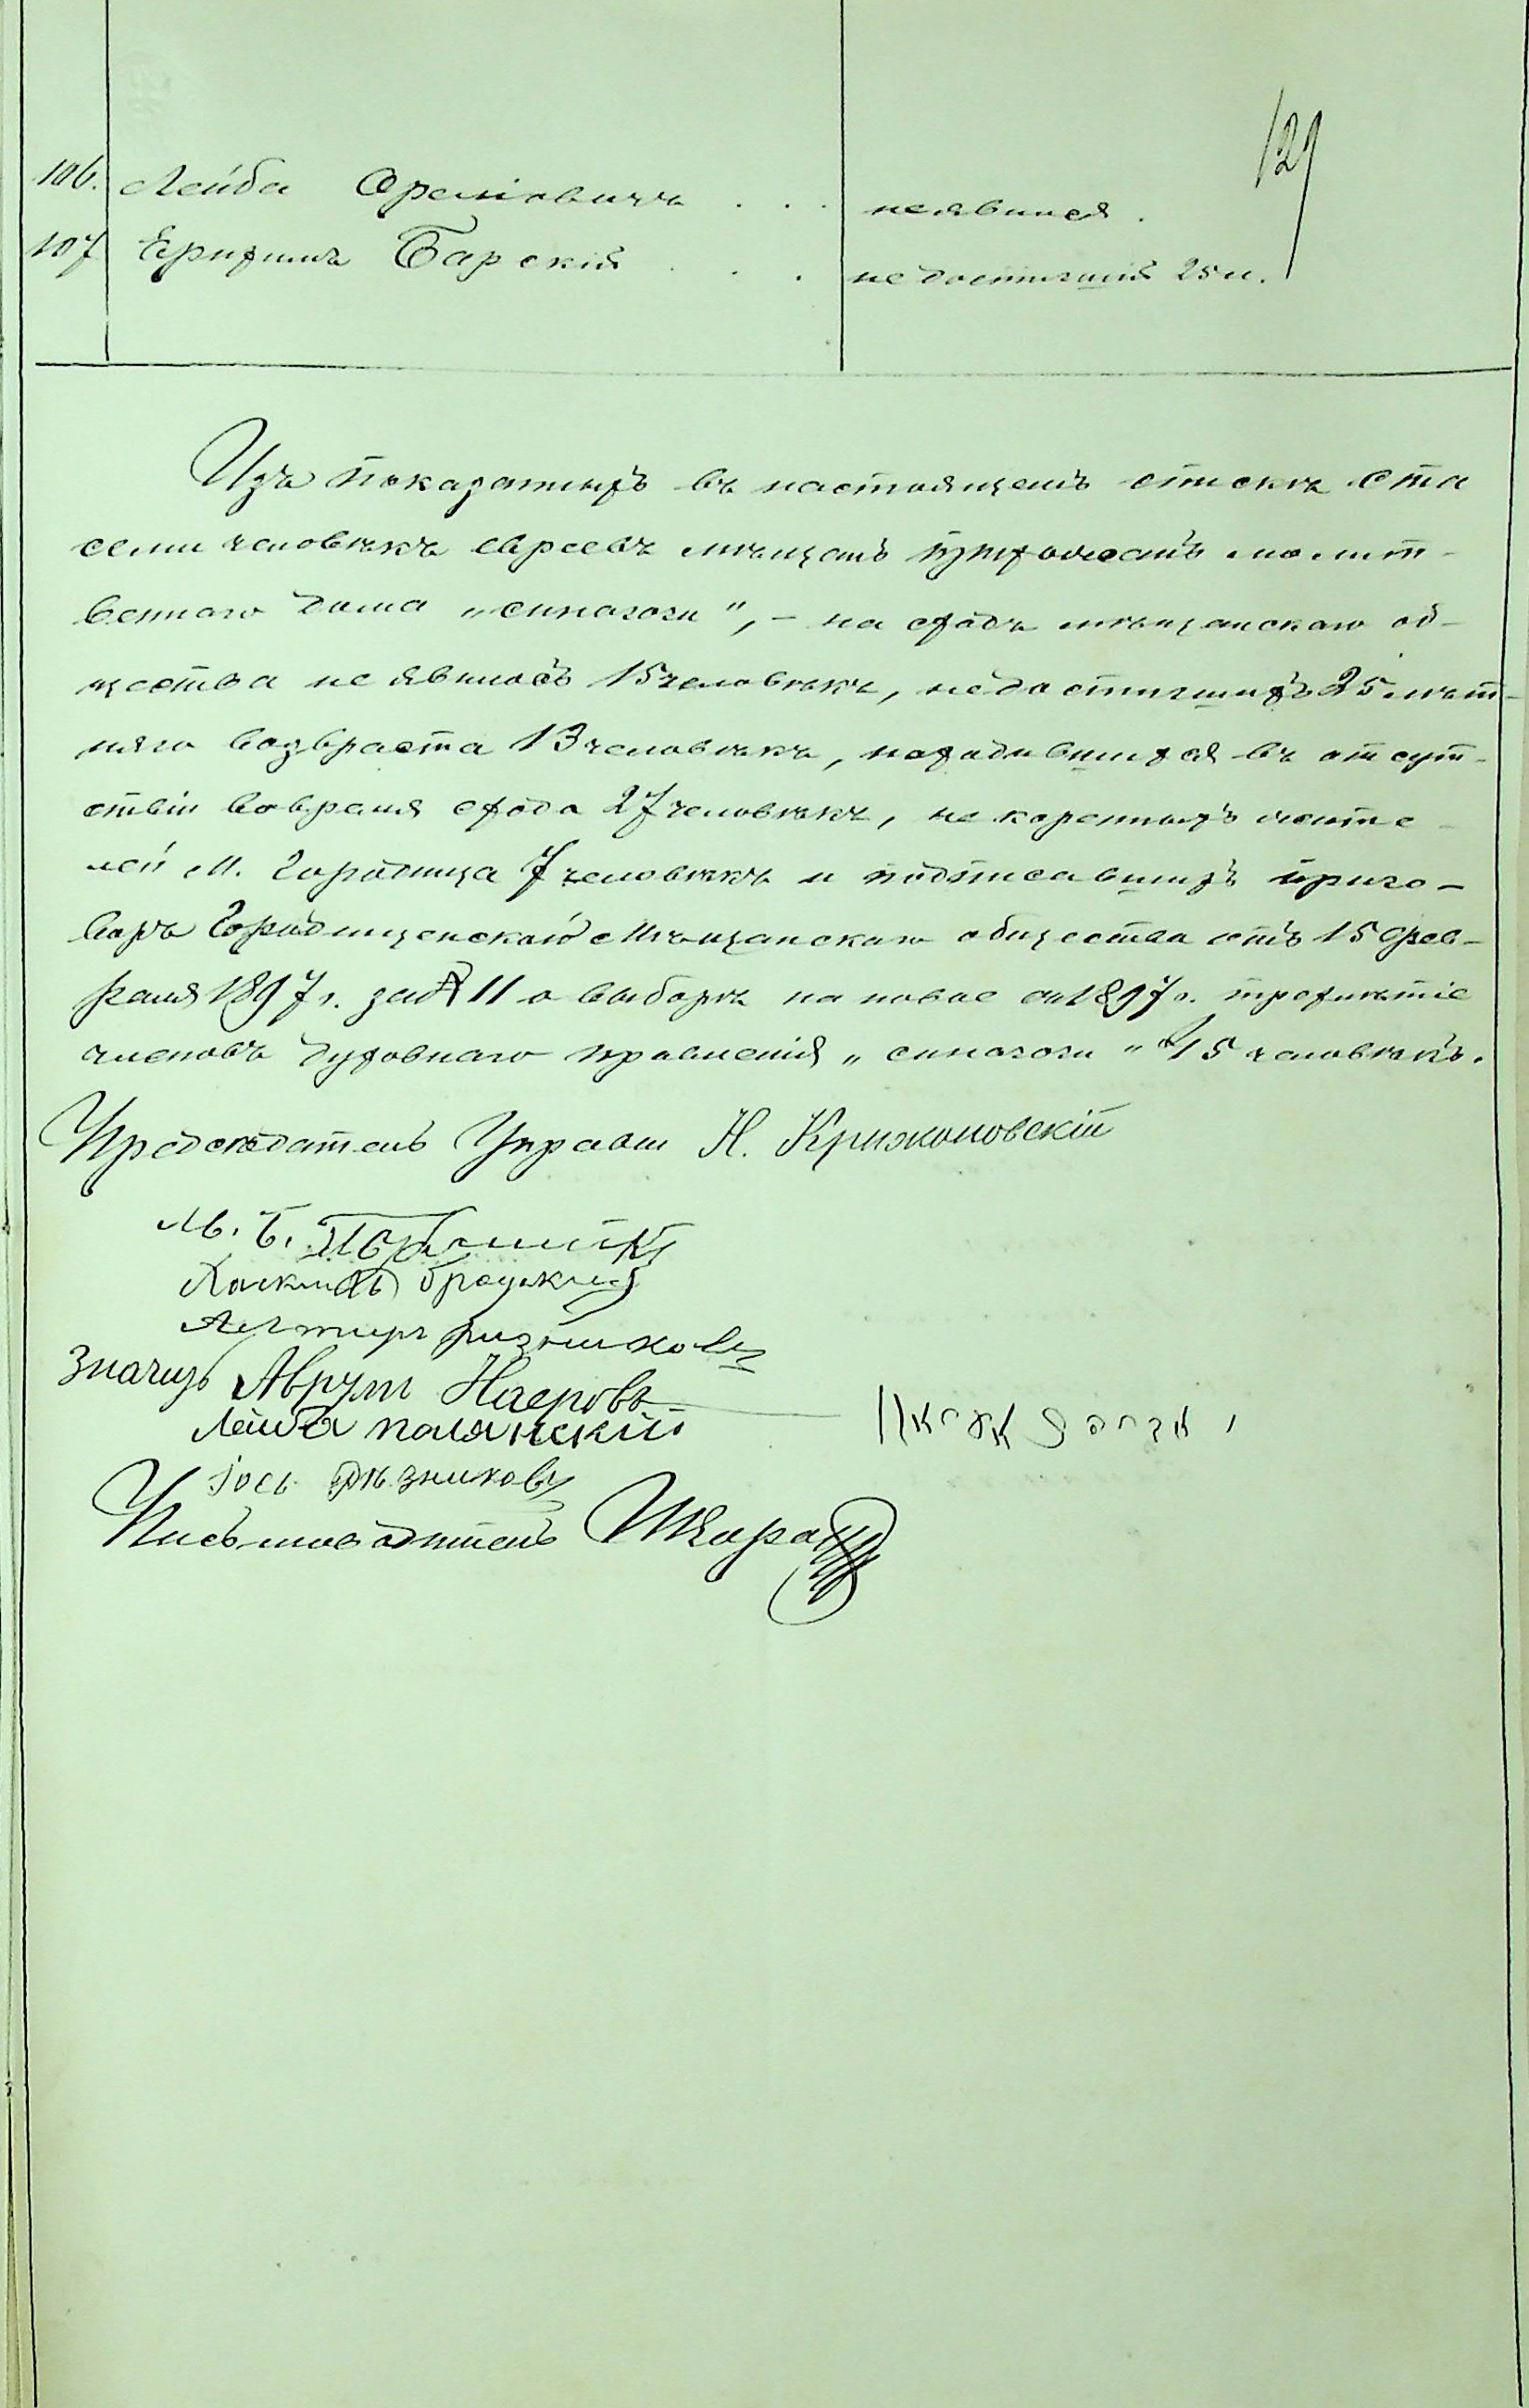 129
106. Лейба Оре­шковичъ . . . неявился .
107 Ерухимъ Барскій . . . не достигшій 25 л.
Изъ показанныхъ въ настоящемъ спискѣ ста
семи человѣкъ евреевъ мѣщанъ прихожанъ молит-
веннаго дома „синагоги", – на сходъ мѣщанскаго об-
щества не явилось 15 человѣкъ, недостигшихъ 25 лѣт-
няго возвраста 13 человѣкъ, находившихся въ отсут-
ствіи вовремя схода 27 человѣкъ, не коренныхъ жите-
лей м. Городища 7 человѣкъ и подписавшихъ приго-
воръ Городищенскаго Мѣщанскаго общества отъ 15 фев-
раля 1897 г. за № 11 о выборѣ на новое съ 1897 г. трехлѣтіе
членовъ духовнаго правленія „синагоги" 45 человѣкъ.
Предсѣдатель Управы Н. Крижоновскій
М. Б.
Хаскель Бродский
Резниковъ
Значусь Аврумъ Наеровъ
Лейба полянскій
Іось Рѣзниковъ
Письмоводитель